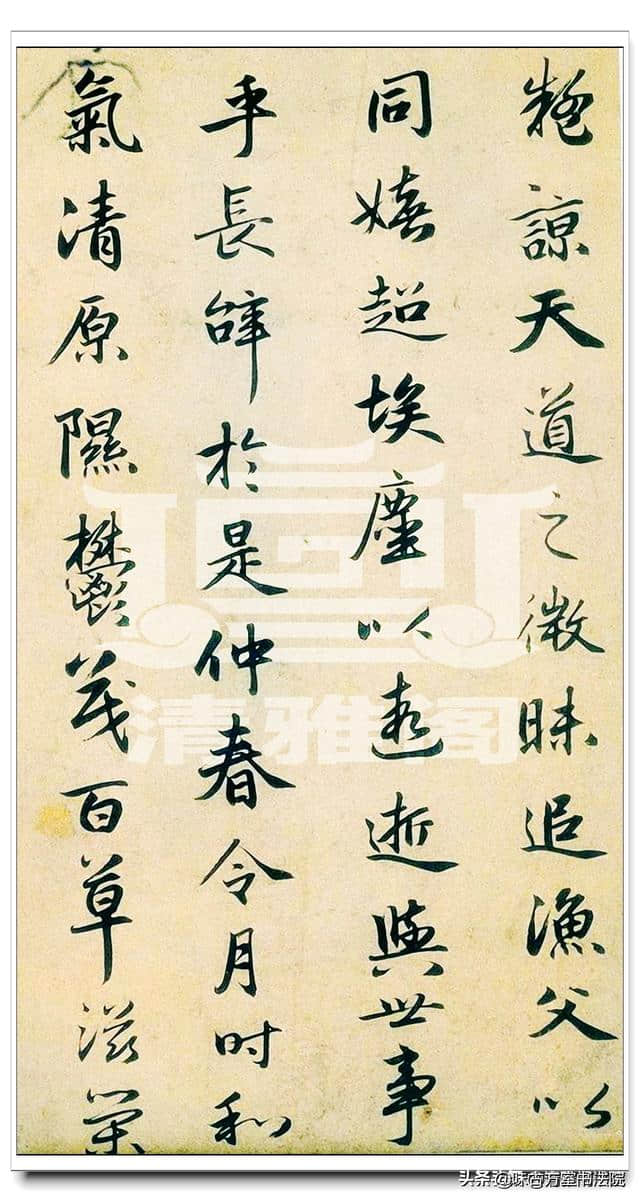 疑諒天道之微昧追漁父以
同嬉超埃塵以遐逝與世事
乎長辭於是仲春令月時和
氣清原隰鬱茂百草滋榮
清雅阁
头条@味古方室书法院